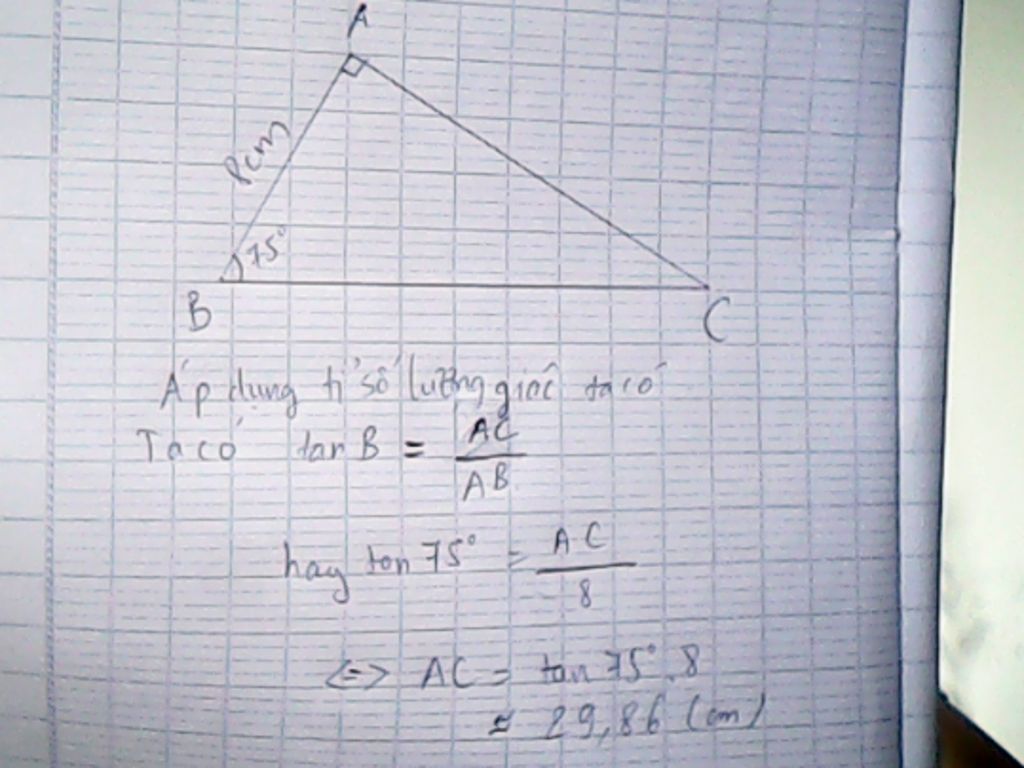 A
8cm
75°
B
C
Áp dụng tỉ số lượng giác ta có
Ta có tan B = AC / AB
hay tan 75° = AC / 8
<=> AC = tan 75° . 8
≈ 29,86 (cm)